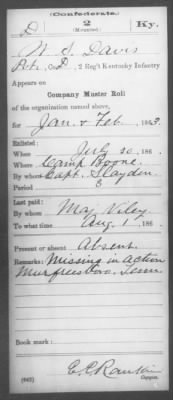 (Confederate.)
D 2 Ky.
(Mounted.)
N. S. Davis
Pvt., Co. D, 2 Reg't Kentucky Infantry
Appears on
Company Muster Roll
of the organization named above,
for Jan & Feb, 1863.
Enlisted:
When July 20, 186
Where Camp Boone
By whom Capt. Slayden
Period 3
Last paid:
By whom Maj Viley
To what time Aug 1, 186
Present or absent Absent
Remarks: Missing in action
Murfreesboro, Tenn
Book mark:
(642)
Copyist.